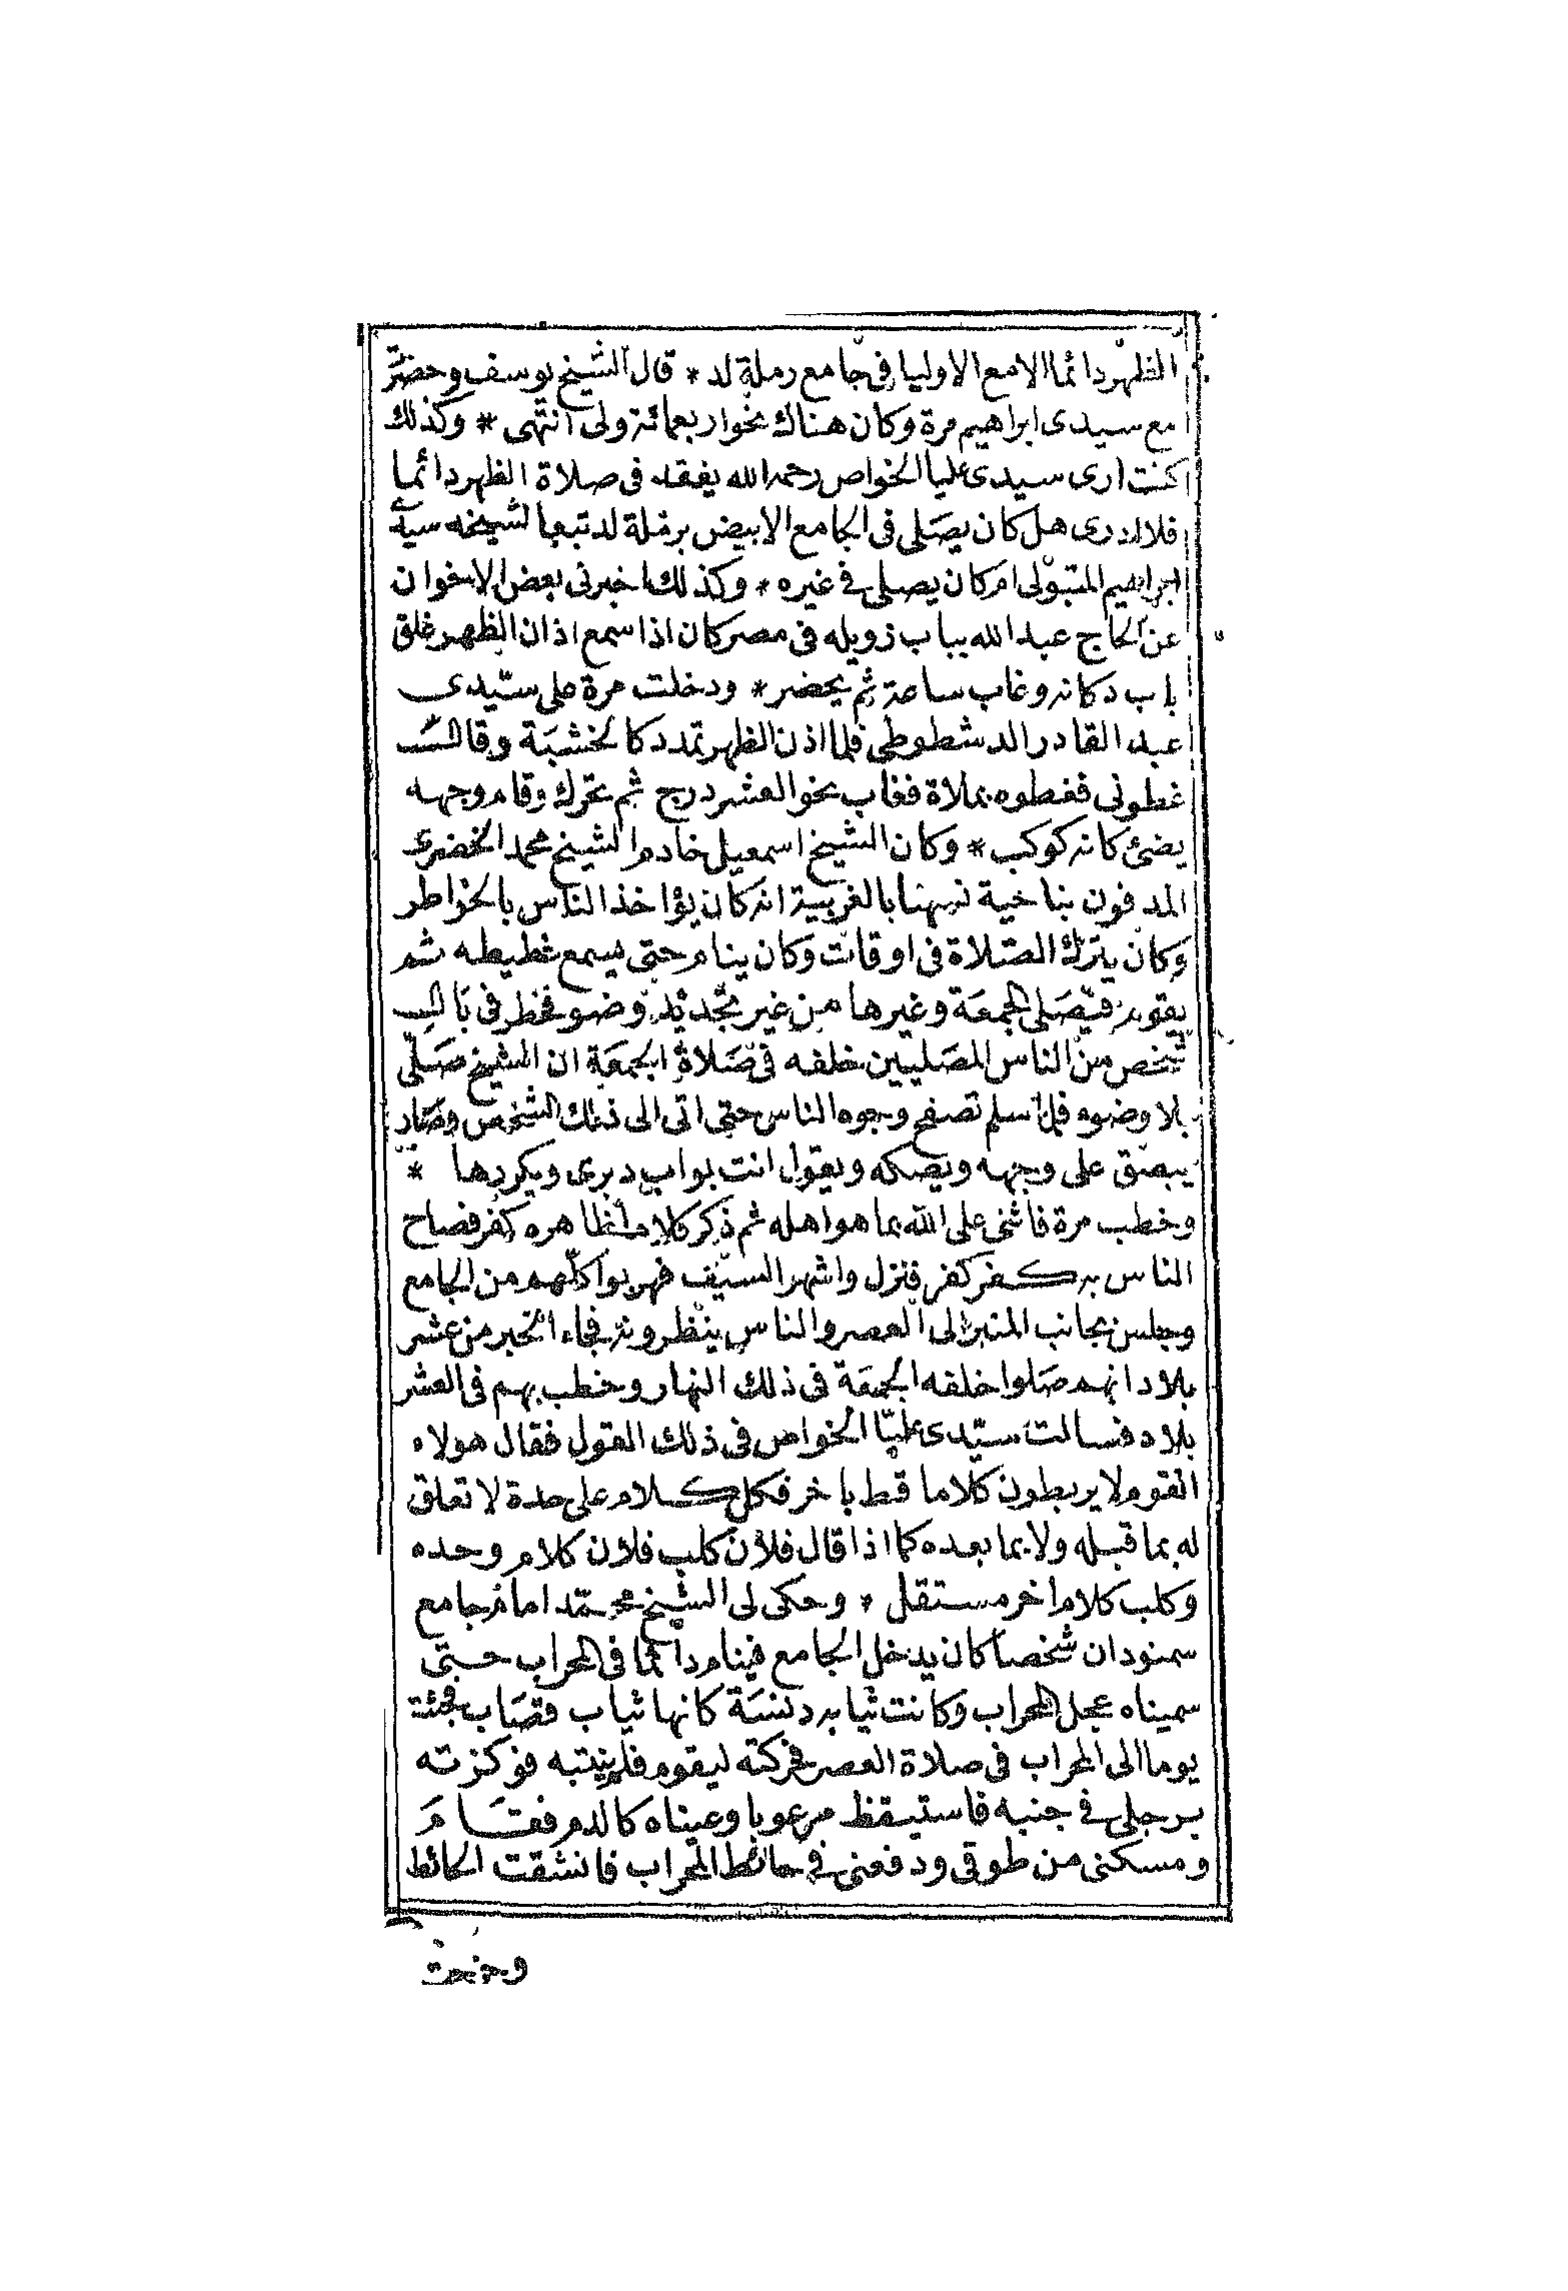 الظهر دائما الا مع الاوليا في جامع رملة لد * قال الشيخ يوسف وحضر
مع سيدى ابراهيم مرة وكان هناك نحو اربعمائة ولى انتهى * وكذلك
كنت ارى سيدى عليا الخواص رحمه الله يفقد فى صلاة الظهر دائما
فلا ادرى هل كان يصلى فى الجامع الابيض برملة لد تبعا لشيخه سيد
ابراهيم المتبولى ام كان يصلى في غيره * وكذلك اخبرنى بعض الاخوان
عن الحاج عبد الله بباب زويله فى مصر كان اذا سمع اذان الظهر غلق
باب دكانه وغاب ساعة ثم يحضر * ودخلت مرة على سيدى
عبد القادر الدشطوطى فلما اذن الظهر تمدد كالخشبة وقال
غطونى فغطوه بملاة فغاب نحو العشر درج ثم تحرك وقام وجهه
يضئ كانه كوكب * وكان الشيخ اسمعيل خادم الشيخ محمد الخضرى
المدفون بناحية نهيا بالغربية انه كان يؤاخذ الناس بالخواطر
وكان يترك الصلاة فى اوقات وكان ينام حتى يسمع غطيطه ثم
يقوم فيصلى الجمعة وغيرها من غير تجديد وضو فخطر فى بال
شخص من الناس المصليين خلفه فى صلاة الجمعة ان الشيخ صلى
بلا وضوء فلما سلم تصفح وجوه الناس حتى اتى الى ذلك الشخص وصار
يبصق على وجهه ويصكه ويقول انت بواب دبرى ويكررها *
وخطب مرة فاثنى على الله بما هو اهله ثم ذكر كلاما ظاهره كفر فصاح
الناس به كفر كفر فنزل واشهر السيف فهربوا كلهم من الجامع
وجلس بجانب المنبر الى العصر والناس ينظرونه فجاء الخبر من عشر
بلاد انهم صلوا خلفه الجمعة فى ذلك النهار وخطب بهم فى العشر
بلاد فسالت سيدى عليا الخواص فى ذلك القول فقال هولاء
القوم لا يربطون كلاما قط باخر فكل كلام على حدة لا تعلق
له بما قبله ولا بما بعده كما اذا قال فلان كلب فلان كلام وحده
وكلب كلام اخر مستقل * وحكى لى الشيخ محمد امام جامع
سمنود ان شخصا كان يدخل الجامع فينام دائما فى المحراب حتى
سميناه عجل المحراب وكانت ثيابه دنسة كانها ثياب قصاب فجئته
يوما الى المحراب فى صلاة العصر فحركته ليقوم فلم ينتبه فوكزته
برجلى في جنبه فاستيقظ مرعوبا وعيناه كالدم فقام
ومسكنى من طوقى ودفعنى في حائط المحراب فانشقت الحائط